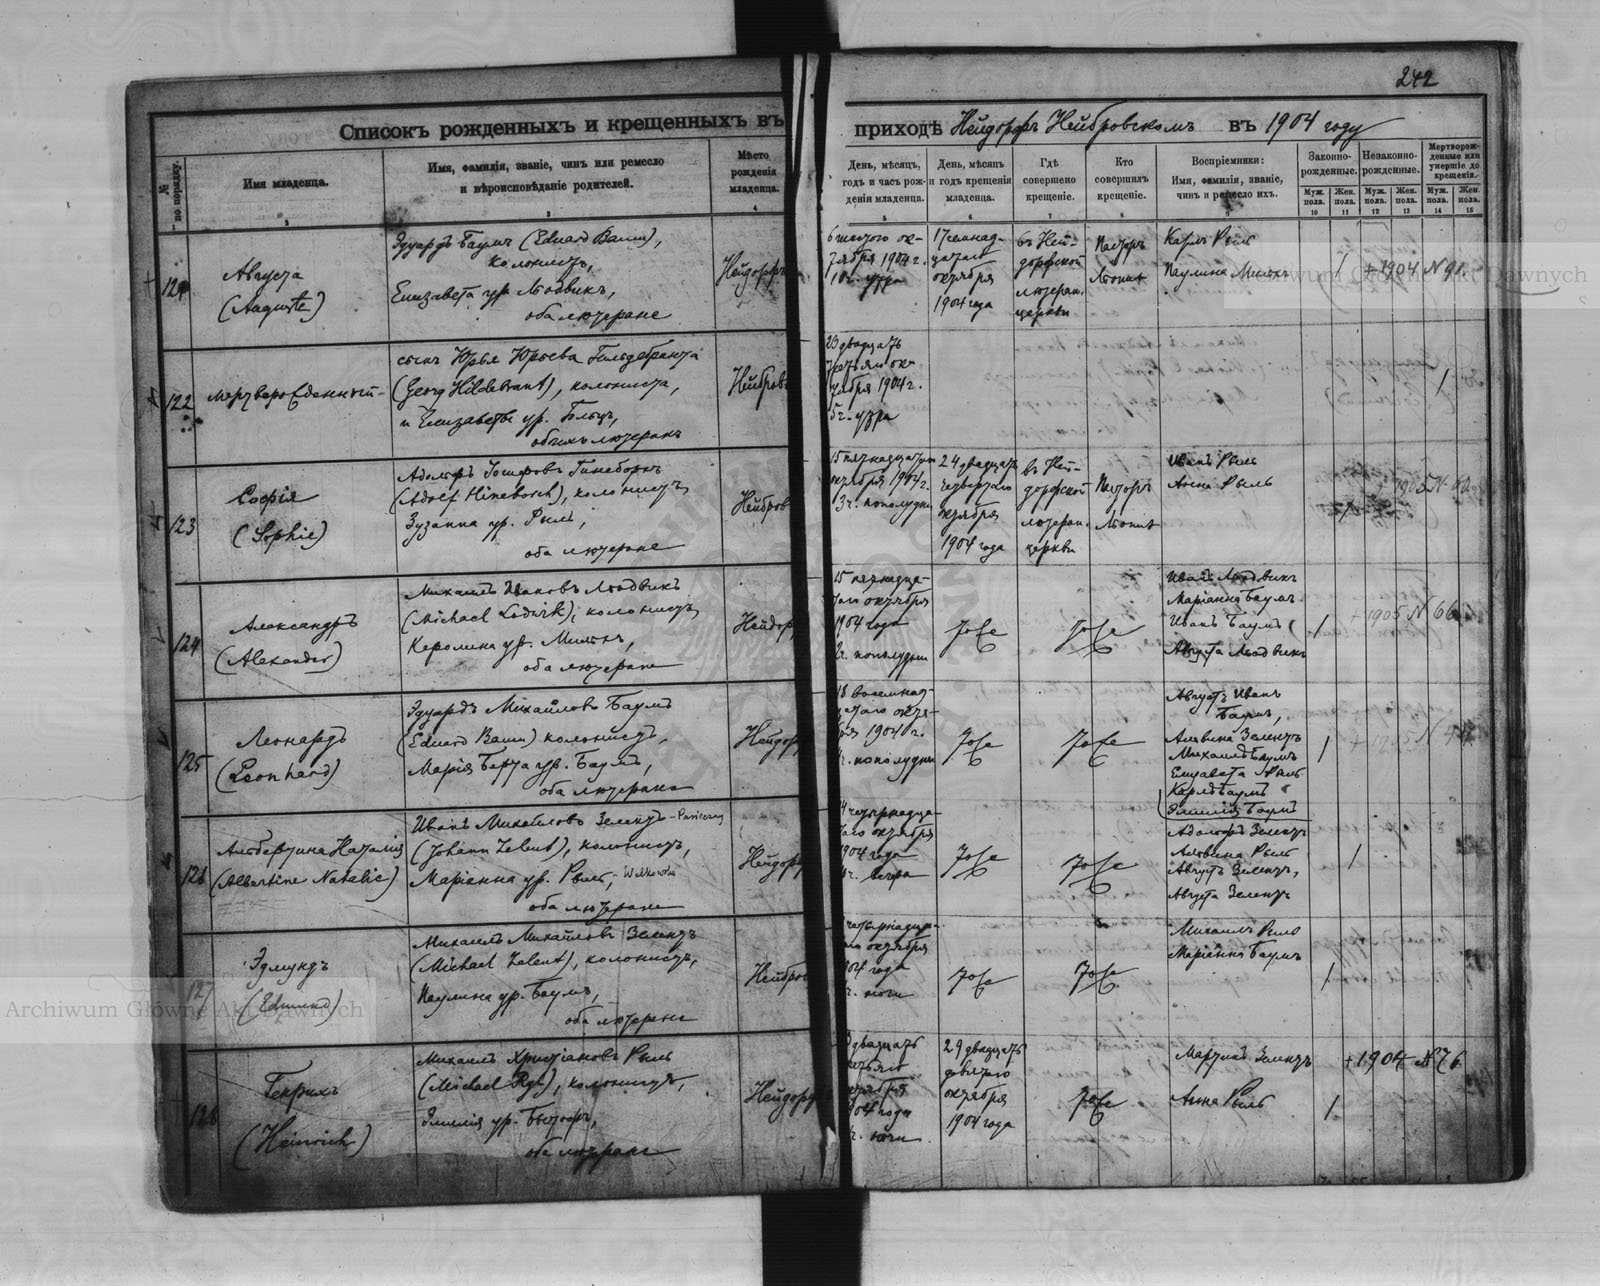 242
Списокъ рожденныхъ и крещенныхъ въ приходѣ Нейдорфъ Нейбровскомъ въ 1904 году
№ по порядку.
Имя младенца.
Имя, фамилія, званіе, чинъ или ремесло
и вѣроисповѣданіе родителей.
Мѣсто
рожденія
младенца.
День, мѣсяцъ,
годъ и часъ рож-
денія младенца.
День, мѣсяцъ
и годъ крещенія
младенца.
Гдѣ
совершено
крещеніе.
Кто
совершилъ
крещеніе.
Воспріемники:
Имя, фамилія, званіе,
чинъ и ремесло ихъ.
Законно-
рожденные.
Незаконно-
рожденные.
Мертворож-
денные или
умершіе до
крещенія.
Муж. пола.
Жен. пола.
Муж. пола.
Жен. пола.
Муж. пола.
Жен. пола.
2 3 4 5 6 7 8 9 10 11 12 13 14 15
121
Августа
(Auguste)
Эдуардъ Баумъ (Eduard Baum),
колонистъ,
Елизавета ур. Людвикъ,
оба лютеране
Нейдорфъ
6 шестого ок-
тября 1904 г.
1 ч. утра
17 семнад-
цатаго
октября
1904 года
въ Ней-
дорфской
лютеран.
церкви
Пасторъ
Карлъ Рыль
Паулина
1
+ 1904 N 91.
122
мертворожденный
сынъ Юрья Юрьева Гильдебранта
(Georg Hildebrant), колониста,
и Елизаветы ур. Гольцъ,
обоихъ лютеранъ
Нейбровъ
23 двадцать
третьяго ок-
тября 1904 г.
5 ч. утра
1
123
Софія
(Sophie)
Адольфъ Іосифовъ Гинеборхъ
(Adolf Hineborch), колонистъ,
Зузанна ур. Рыль,
оба лютеране
Нейбровъ
15 пятнадцатаго
октября 1904 г.
3 ч. пополудни
24 двадцать
четвертаго
октября
1904 года
въ Ней-
дорфской
лютеран.
церкви
Пасторъ
Иванъ Рыль
Анна Рыль
1905 N
124
Александръ
(Alexander)
Михаилъ Ивановъ Людвикъ
(Michael Ludwik), колонистъ,
Каролина ур.
оба лютеране
Нейдор
15 пятнадца-
таго октября
1904 года
ч. пополудни
тоже
тоже
Иванъ Людвикъ
Маріанна Баумъ
Иванъ Баумъ
Августа Людвикъ
1
+ 1905 N 66
125
Леонардъ
(Leonhard)
Эдуардъ Михайловъ Баумъ
(Eduard Baum) колонистъ,
Марія Берта ур. Баумъ,
оба лютеране
Нейдор
18 восемнад-
цатаго октя-
бря 1904 г.
ч. пополудни
тоже
тоже
Августъ Иванъ
Баумъ,
Альвина Зелентъ
Михаилъ Баумъ
Елизавета Рыль
Карлъ Баумъ
Эмилія Баумъ
1
+ 1905 N
126
Альбертина Наталія
(Albertine Natalie)
Иванъ Михайловъ Зелентъ
(Johann Zelent), колонистъ,
Маріанна ур. Рыль,
оба лютеране
Нейдор
14 четырнадца-
таго октября
1904 года
ч. вечера
тоже
тоже
Адольфъ Зелентъ
Альвина Рыль
Августъ Зелентъ,
Августа Зелентъ
1
127
Эдмундъ
(Edmund)
Михаилъ Михайловъ Зелентъ
(Michael Zelent), колонистъ,
Паулина ур. Баумъ,
оба лютеране
Нейбров
четырнадца-
таго октября
1904 года
ч. ночи
тоже
тоже
Михаилъ Рыль
Маріанна Баумъ
1
128
Генрихъ
(Heinrich)
Михаилъ Христіановъ Рыль
(Michael Ryl), колонистъ,
Эмилія ур.
оба лютеране
Нейдорф
двадцать
третьяго
октября
1904 года
ч. ночи
29 двадцать
девятаго
октября
1904 года
тоже
Мартинъ Зелентъ
Анна Рыль
1
+ 1904 N 76
Archiwum Główne Akt Dawnych
Archiwum Główne Akt Dawnych